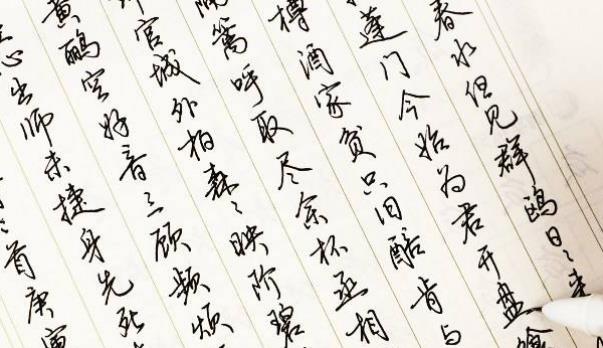 春水但见群鸥日〻来
蓬门今始为君开盘
樽酒家贫只旧醅肯与
篱呼取尽余杯丞相
官城外柏森〻映阶碧
黄鹂空好音三顾频烦
心出师未捷身先死
首庚寅